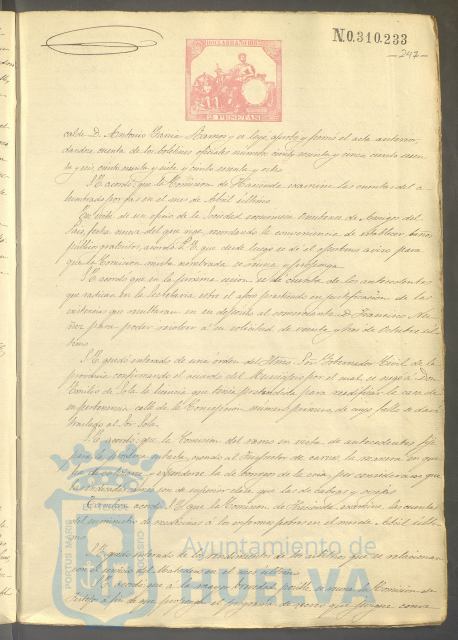 N.0.310.233
247
2 PESETAS
calde D. Antonio García Ramos y se leyó, aprobó y firmó el acta anterior
dándose cuenta de los boletines oficiales número ciento sesenta y cinco, ciento sesen
ta y seis, ciento sesenta y siete y ciento sesenta y ocho
Se acordó: que la Comisión de Hacienda examine las cuentas del a
lumbrado por gas en el mes de Abril último
En vista de un oficio de la Sociedad económica Onubense de Amigos del
País, fecha nueve del que rige, recordando la conveniencia de establecer baños
públicos gratuitos, acordó S. E. que desde luego se dé el oportuno aviso para
que la Comisión mixta nombrada se reúna y proponga
Se acordó que en la próxima sesión se dé cuenta de los antecedentes
que radican en la Secretaría sobre el aforo practicado en justificación de las
existencias que resultaron en su depósito al comerciante D. Francisco
para poder resolver a su solicitud de veinte y tres de Octubre úl
timo
Se quedó enterado de una orden del Ilmo. Sor. Gobernador Civil de la
provincia confirmando el acuerdo del Municipio por el cual se negó a Don
Emilio de Sola la licencia que tenía pretendida para modificar la casa de
su pertenencia calle de la Concepción número primero de cuyo fallo se dará
traslado al Sor. Sola
Se acordó: que la Comisión del ramo en vista de antecedentes fije
al Inspector de carnes la manera en que
de la por consideración que
son de superior clase, que las de cabras y ovejas
También acordó S. E. que la Comisión de Hacienda examine las cuentas
del suministro de medicinas a la enferma pobre en el mes de Abril últi
mo
Se quedó enterado de
con el servicio del Matadero en el mes último
Se acordó: que a la mayor brevedad posible se reúna la Comisión de
Festejos a fin de que proponga el programa de los que juzgue conve
PORTUS MARIS
Ayuntamiento de
HUELVA